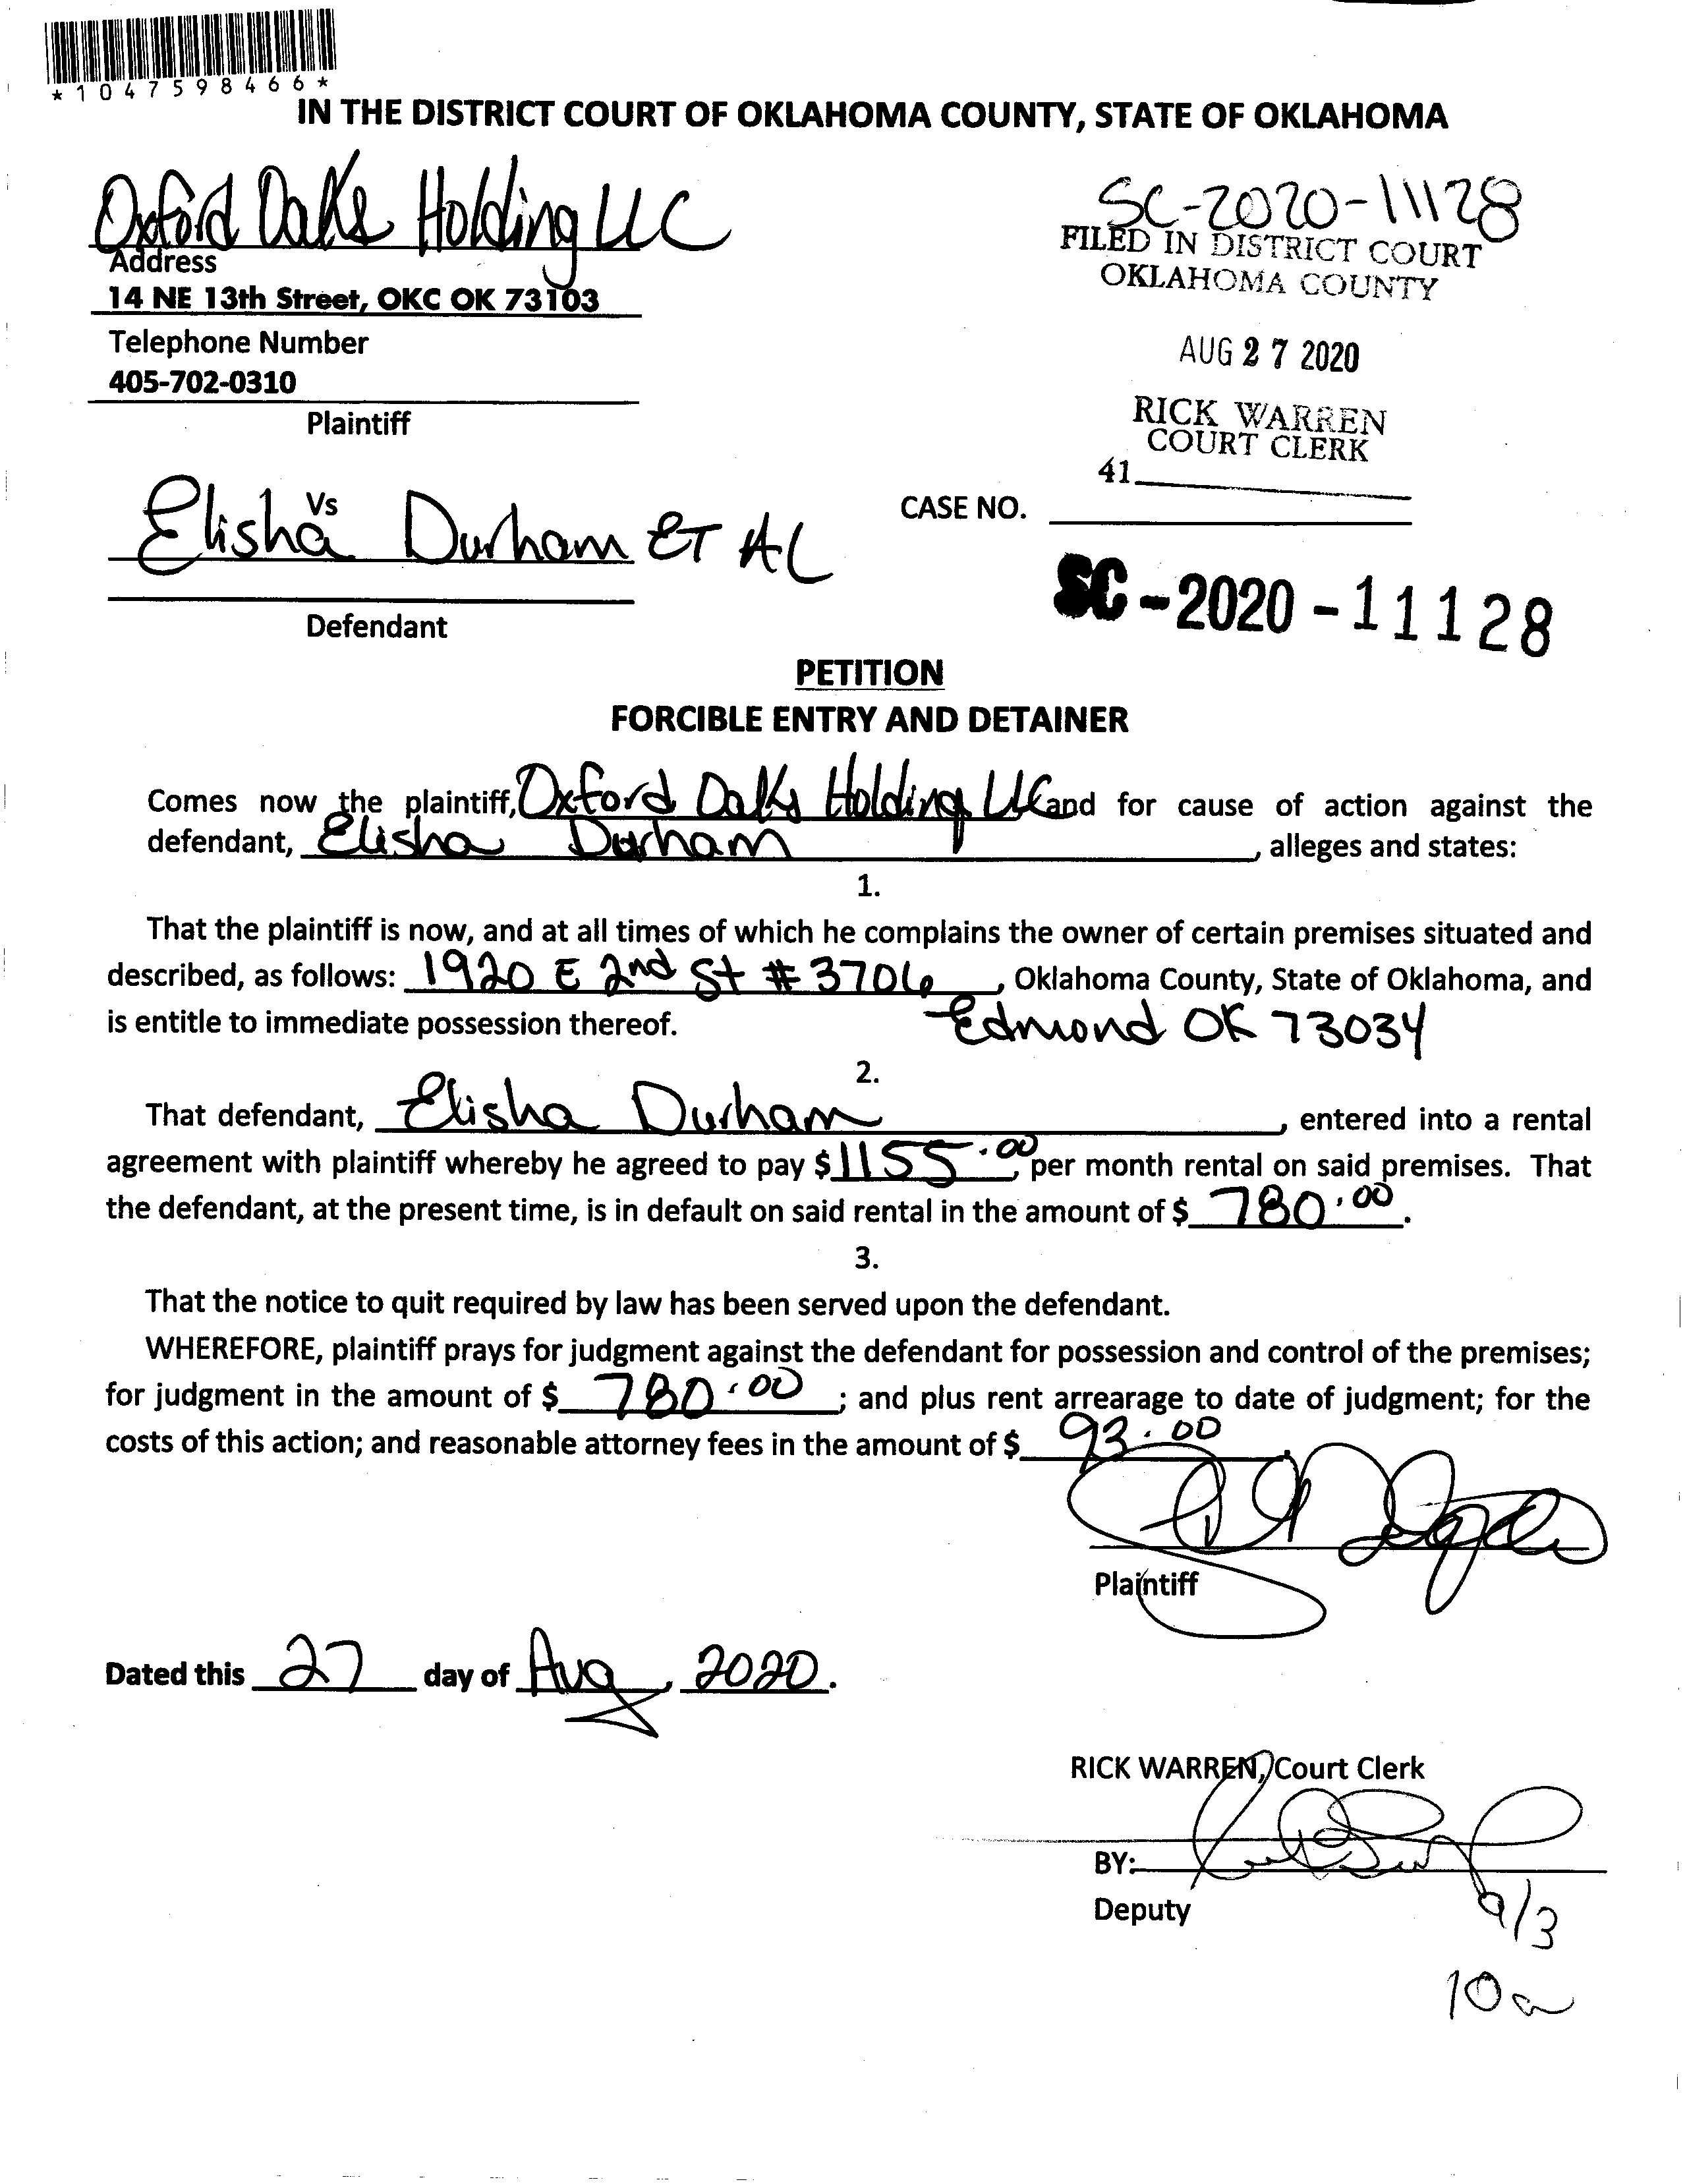 *1047598466*
IN THE DISTRICT COURT OF OKLAHOMA COUNTY, STATE OF OKLAHOMA
Oxford Oaks Holding LLC
Address
14 NE 13th Street, OKC OK 73103
Telephone Number
405-702-0310
Plaintiff
SC-2020-11128
FILED IN DISTRICT COURT
OKLAHOMA COUNTY
AUG 27 2020
RICK WARREN
COURT CLERK
41
Vs
Elisha Durham ET AL
Defendant
CASE NO.
SC-2020-11128
PETITION
FORCIBLE ENTRY AND DETAINER
Comes now the plaintiff, Oxford Oaks Holding LLC and for cause of action against the
defendant, Elisha Durham, alleges and states:
1.
That the plaintiff is now, and at all times of which he complains the owner of certain premises situated and
described, as follows: 1920 E 2nd St #3706, Oklahoma County, State of Oklahoma, and
is entitle to immediate possession thereof. Edmond OK 73034
2.
That defendant, Elisha Durham, entered into a rental
agreement with plaintiff whereby he agreed to pay $1155.00, per month rental on said premises. That
the defendant, at the present time, is in default on said rental in the amount of $ 780.00.
3.
That the notice to quit required by law has been served upon the defendant.
WHEREFORE, plaintiff prays for judgment against the defendant for possession and control of the premises;
for judgment in the amount of $ 780.00; and plus rent arrearage to date of judgment; for the
costs of this action; and reasonable attorney fees in the amount of $ 93.00.
Plaintiff
Dated this 27 day of Aug, 2020.
RICK WARREN, Court Clerk
BY:
Deputy
9/3
10a